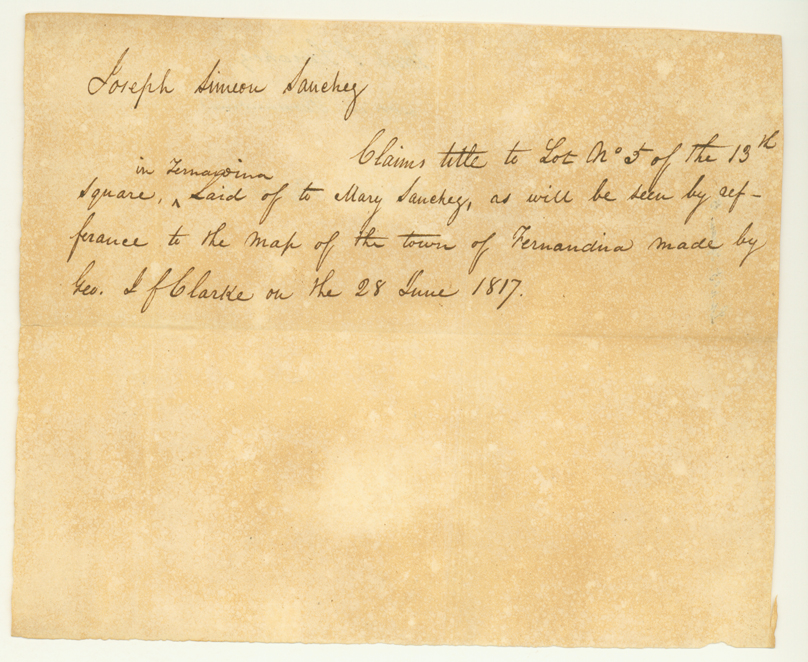 Joseph Simeon Sanchez
Claims title to Lot No 5 of the 13th
in Fernandina
Square, ^ Laid of to Mary Sanchez, as will be seen by ref-
ferance to the map of the town of Fernandina made by
Geo. I f Clarke on the 28 June 1817.